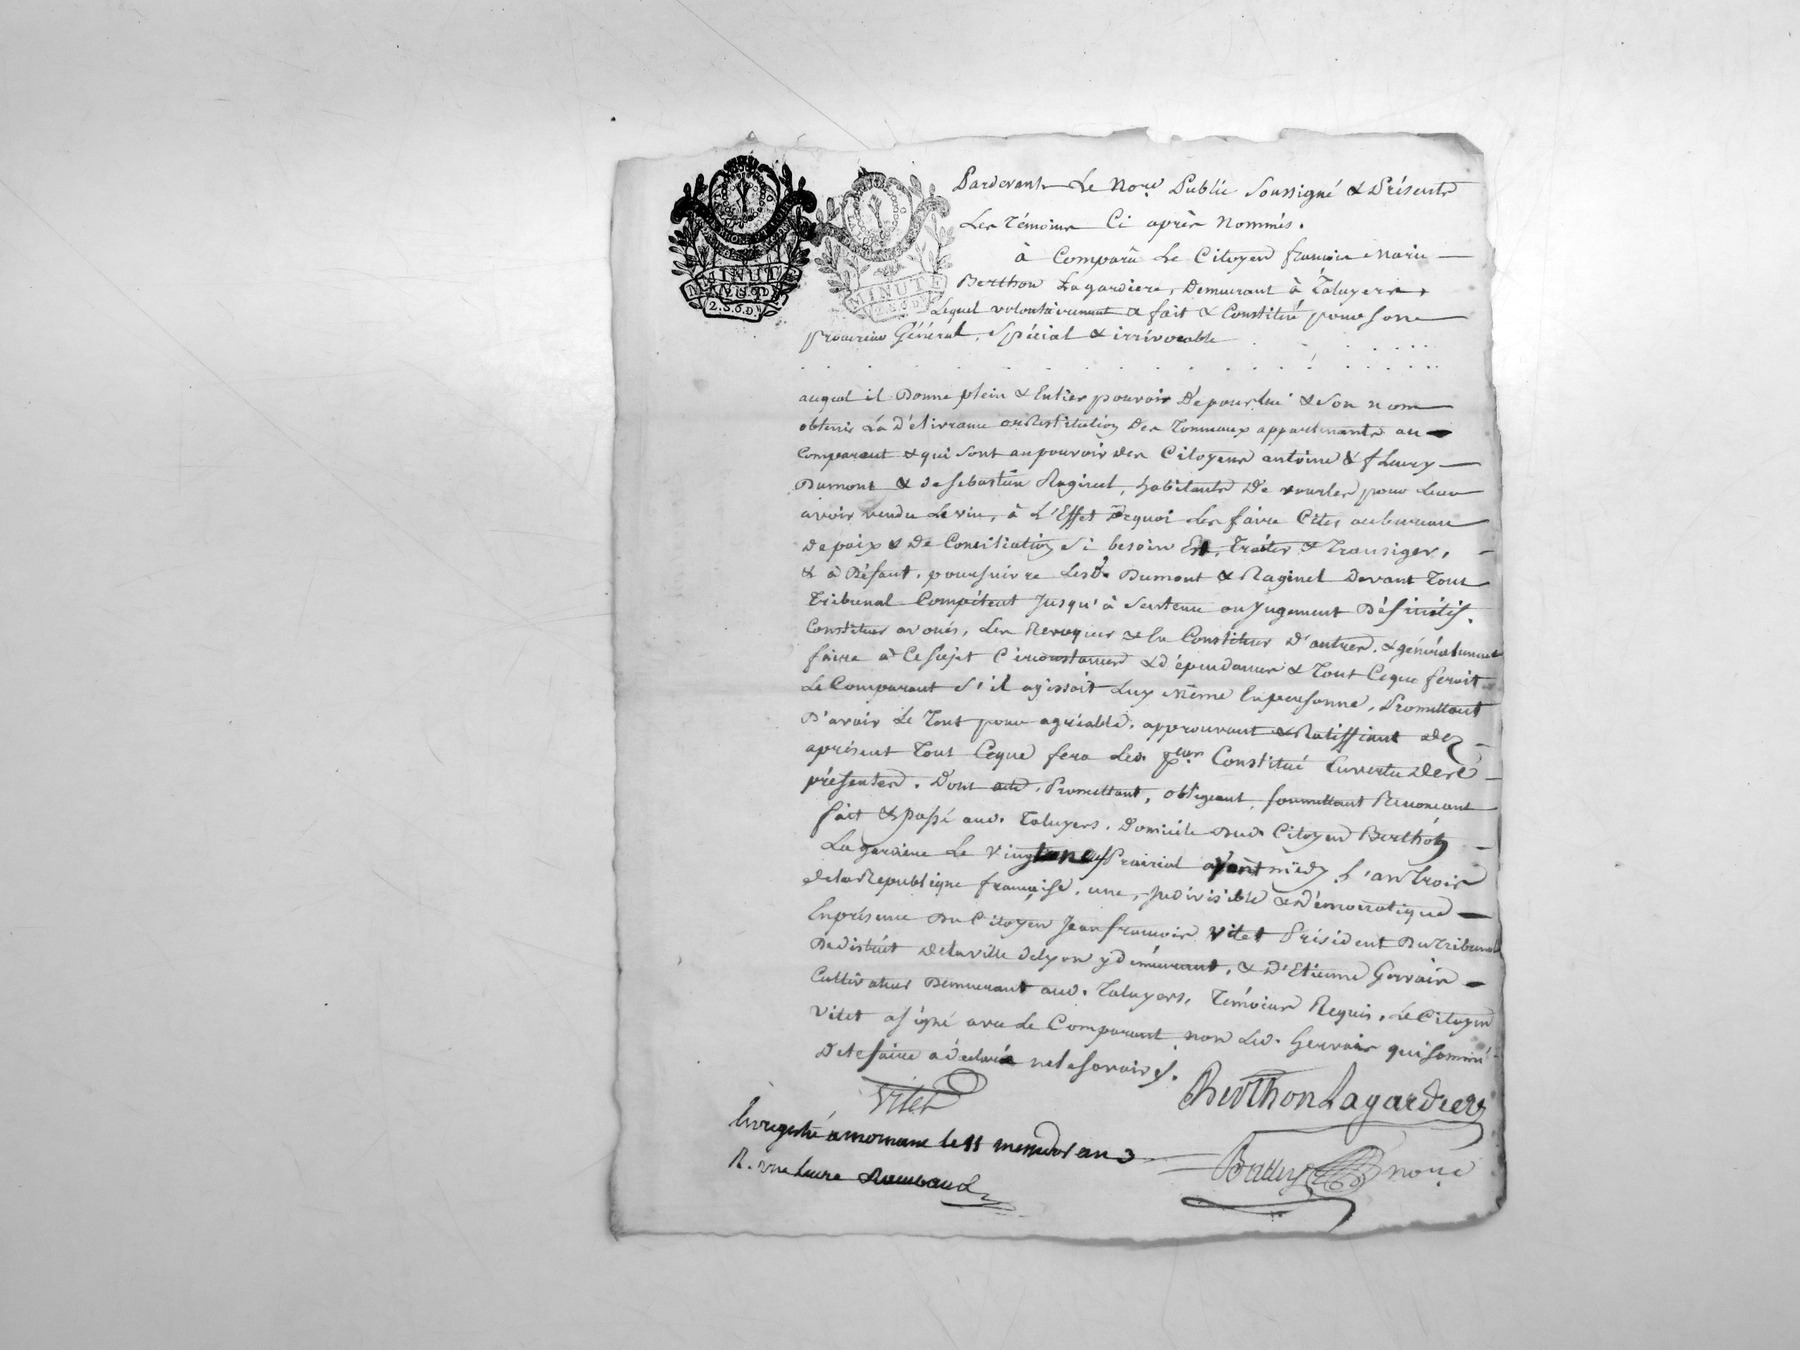 MINUTE
2. S. 6. D.
MINUTE
2. S. 6. D.
Pardevant Le No.re Public Soussigné & Présents
Les Témoins Ci après Nommés.
à Comparû Le Citoyen françois Marie
Berthon Lagardiere, Demeurant à Taluyers,
Lequel volontairement a fait & Constitué pour Son
procureur Général, Spécial & irrévocable
auquel il Donne plein & Entier pouvoir De pour lui & Son nom
obtenir La Délivrance ou Restitution Des Tonneaux appartenants au
Comparant & qui sont au pouvoir des Citoyens antoine & fleury
Dumont & de Sebastien Raginel, habitants De pour Leur
avoir vendu Le vin, à L'Effet Dequoi Les faire Citer au bureau
De paix & De Conciliation Si besoin Est, Traiter & Transiger,
& à Défaut, poursuivre Lesd. Dumont & Raginel Devant Tout
Tribunal Compétent Jusqu'à Sentence ou Jugement Définitif.
Constituer avoués, Les Revoquer & En Constituer D'autres, & généralement
faire à Ce Sujet Circonstances & dépendances & Tout Ceque feroit
Le Comparant S'il agissoit Luy Même En personne, Promettant
D'avoir Le Tout pour agréable, approuvant & Ratiffiant dez
aprésent Tout Ceque fera Led. p.eur Constitué En vertu Des
présentes. Dont acte, Promettant, obligeant, soumettant Renonçant
fait & passé aud. Taluyers, Domicile Dud. Citoyen Berthon
Lagardiere Le vingt Prairial avant midy L'an Trois
de la Republique française, une, Indivisible & Démocratique
En présence Du Citoyen Jean françois Vitet Président Du Tribunal
De district De la ville de Lyon y demeurant, & D'Etienne Gervais
Cultivateur Demeurant aud. Taluyers, Témoins Requis, Le Citoyen
Vitet a signé avec Le Comparant non Led. Gervais qui sommé
De le faire a déclaré ne le savoir.
Vitet
BerthonLagardiere
Enregistré a mornant le 11 messidor an 3
R. une livre
no.re